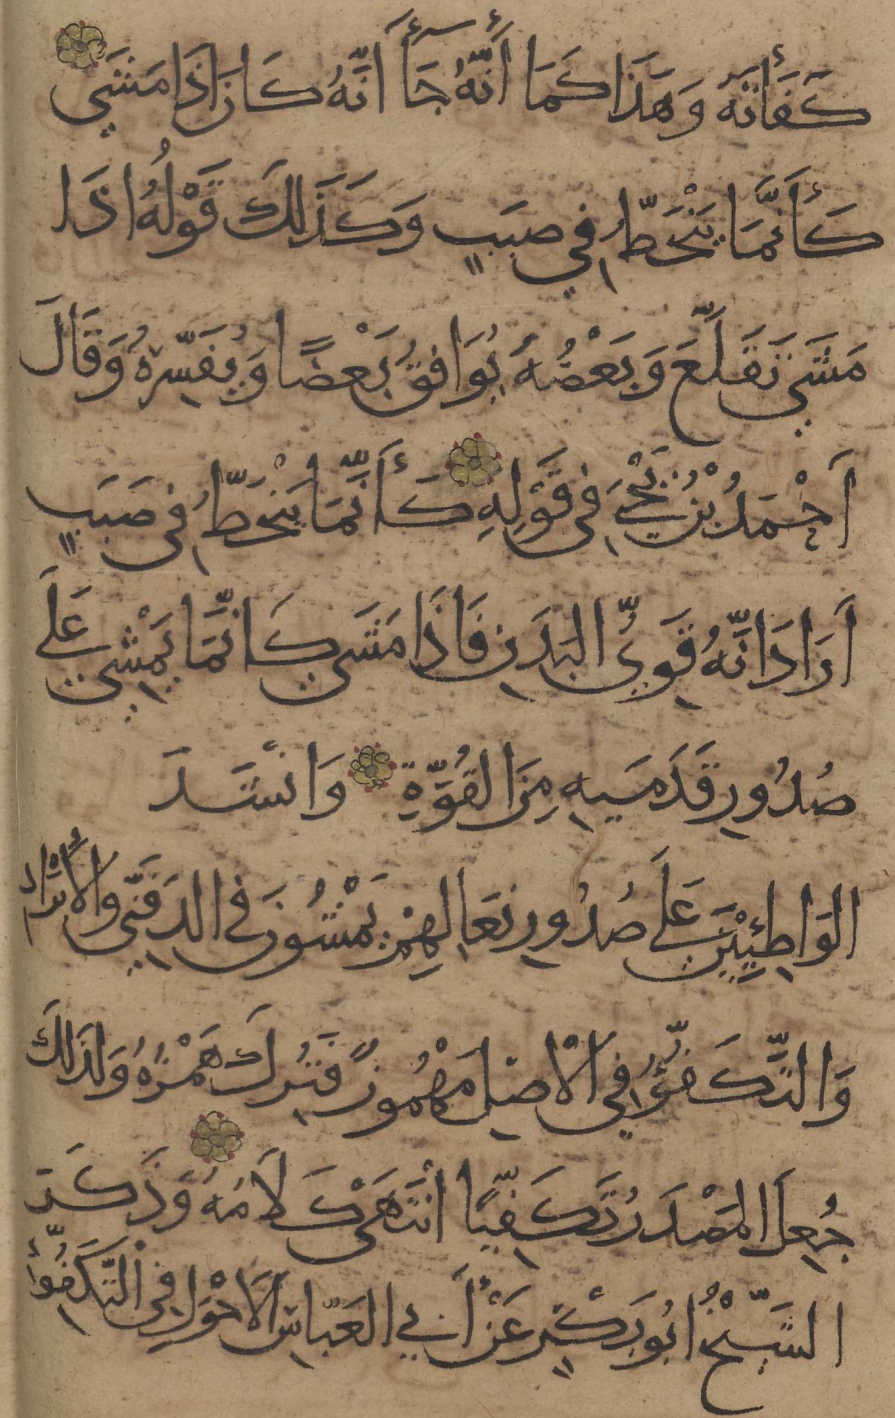 كَفَأْتَهُ وَهَذَا كَمَا أَنَّهُ جَأَ أَنَّهُ كَانَ اِذَا مَشَي
كَأَنَّمَا يَنْحَطُّ فِي صَبَبٍ وَكَذَلِكَ قَوْلُهُ اذَا
مَشَي تَقَلَّعَ وَبَعْضُهُ يُوَافِقُ بَعْضًا وَيُفَسِّرُهُ وَقَالَ
أَحْمَدُ بْنُ يَحْيَ فِي قَوْلِهِ كَأَنَّمَا يَنْحَطُّ فِي صَبَبٍ
أَرَادَ انَّهُ قَوِيُّ البَدَنِ فَاذَا مَشَي كَانَّمَا يَمْشِي عَلَي
صُدُورِ قَدَمَيهِ مِنَ القُوَّةِ وَانْشَدَ
الوَاطِئِيْنَ عَلَي صُدُورِ نِعَالِهِمْ يَمْشُونَ فِي الدَفَنِيِّ والأَبْرَادِ
وَالتَّكَفُّؤُ فِي الْاصْلِ مَهْمُوزٌ فَتُرِكَ هَمْزُهُ وَلِذَلِكَ
جُعِلَ المَصْدَرُ تَكَفِّيًا انْتَهَى كَلَامُهُ وَذَكَرَ
الشَّيْخُ ابُو بَكْرٍ عَنْ أَبِي العَبَّاسِ الَاحْوَلِ فِي التَّكَفُّؤِ